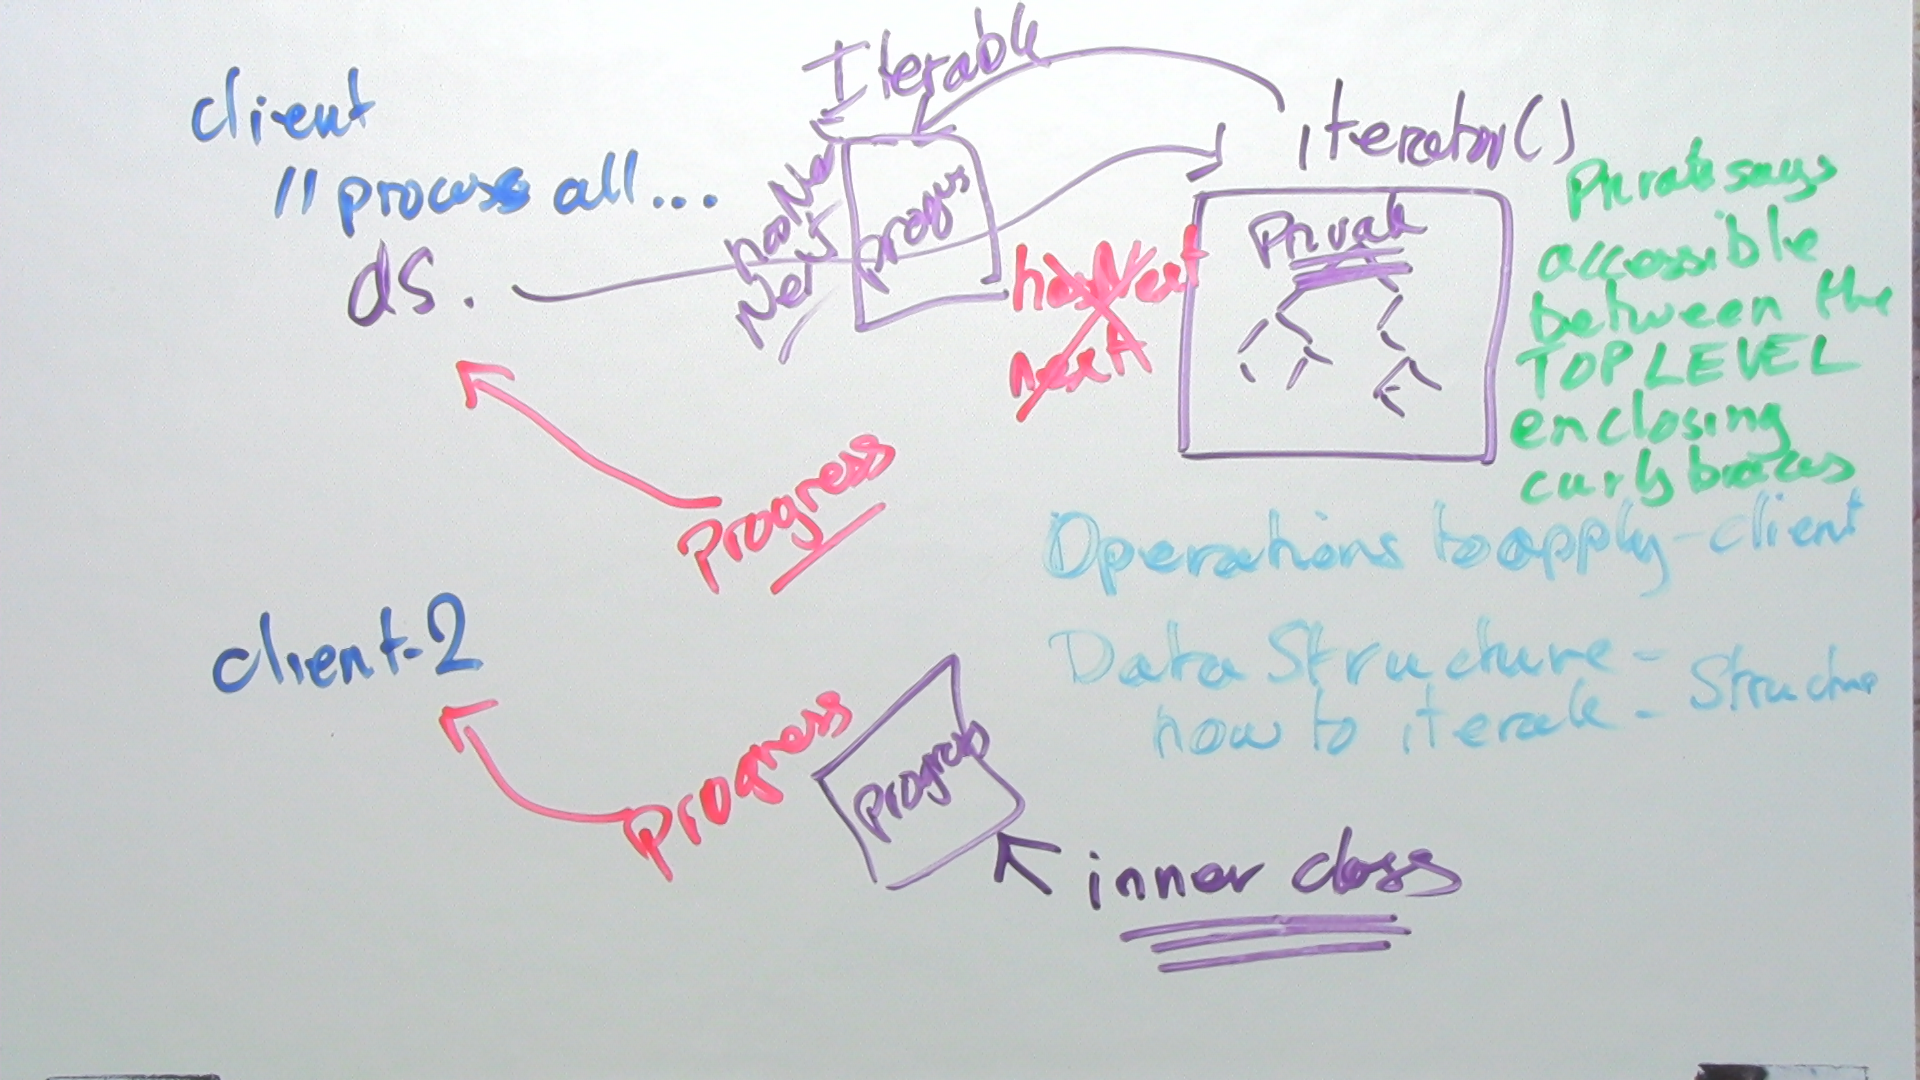 Iterable
client
// process all...
ds.
hasNext
Next
progress
iterator()
Private
hasNext
next
Private says
accessible
between the
TOP LEVEL
enclosing
curly braces
Progress
Operations to apply - client
Data Structure -
how to iterate - Structure
client-2
Progress
Progress
inner class